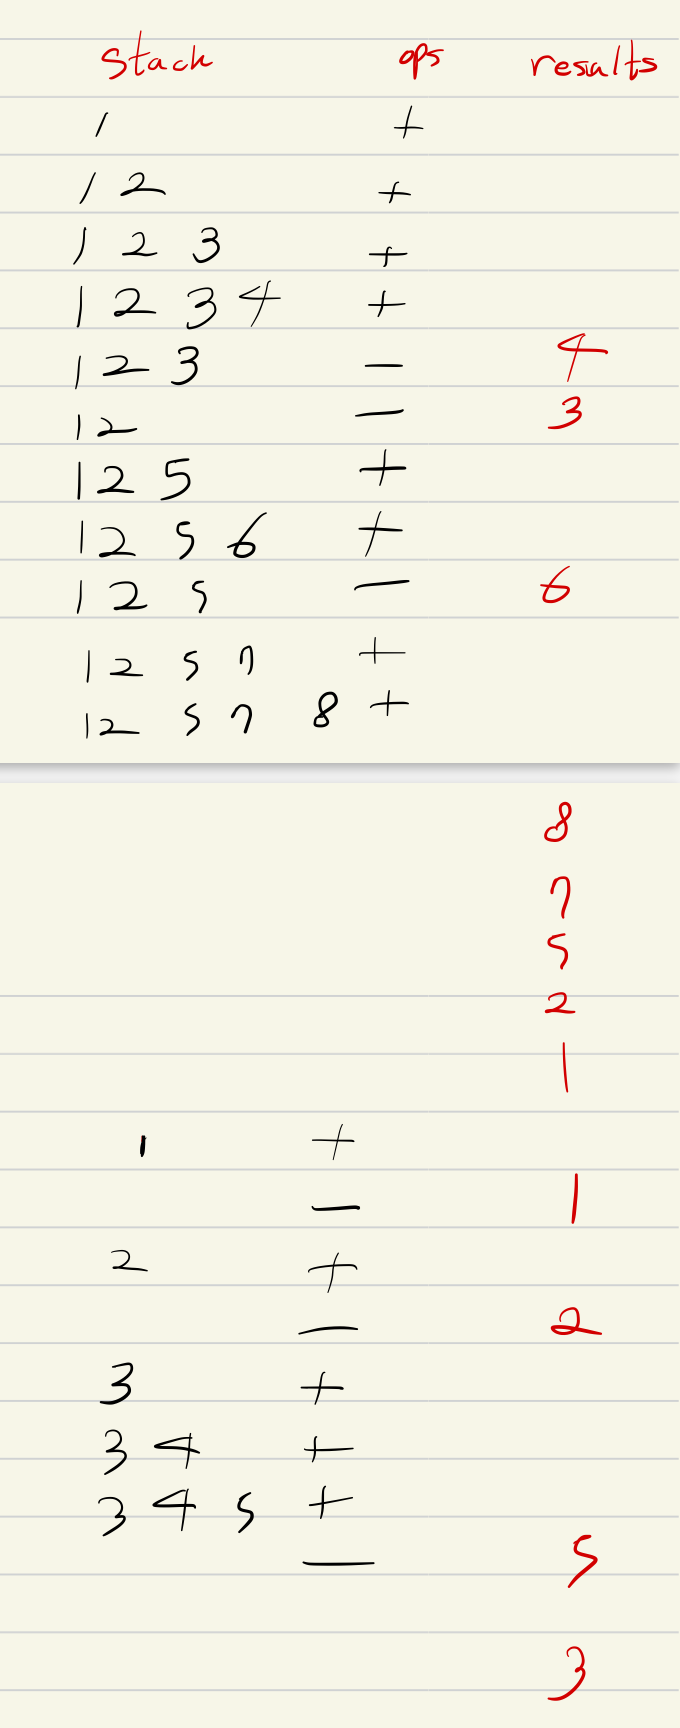 stack ops results
1 +
1 2 +
1 2 3 +
1 2 3 4 +
1 2 3 − 4
1 2 − 3
1 2 5 +
1 2 5 6 +
1 2 5 − 6
1 2 5 7 +
1 2 5 7 8 +
8
7
5
2
1
1 +
− 1
2 +
− 2
3 +
3 4 +
3 4 5 +
− 5
3